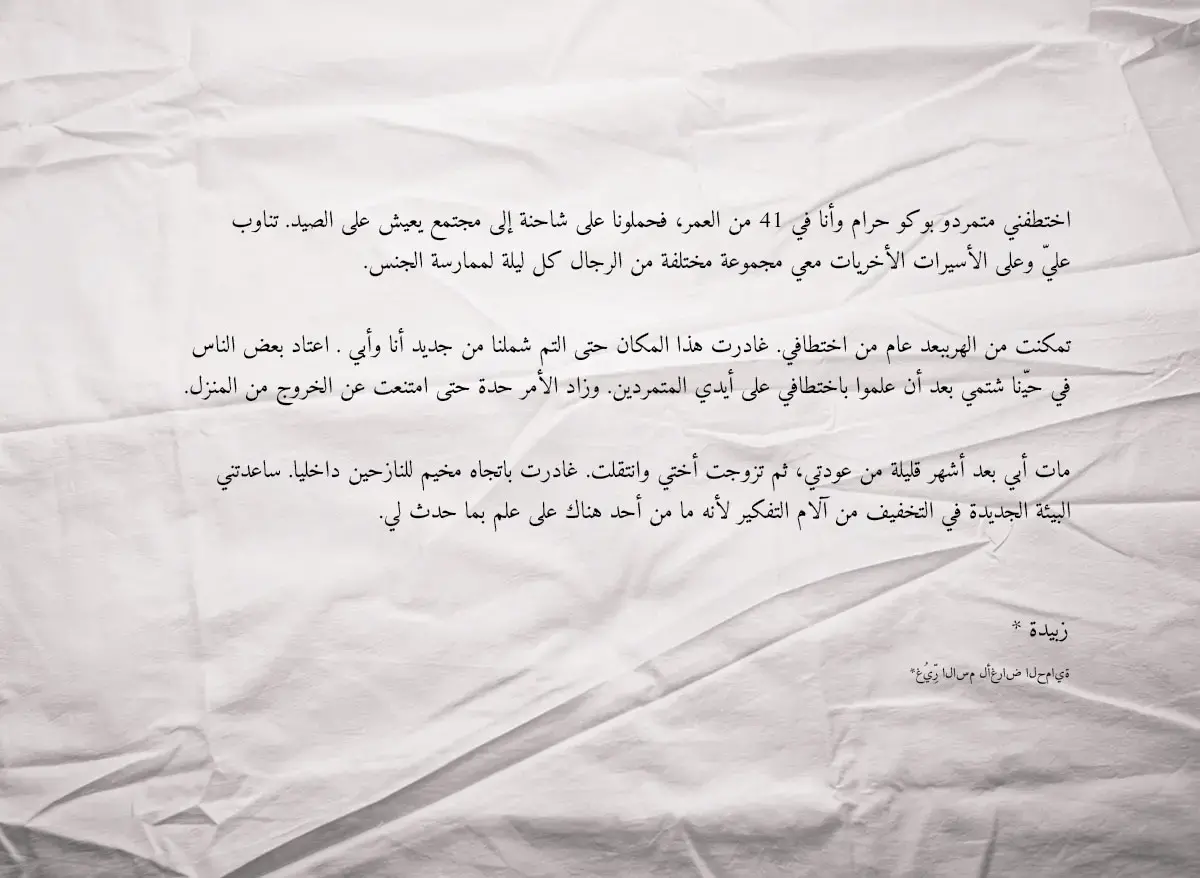 اختطفني متمردو بوكو حرام وأنا في 41 من العمر، فحملونا على شاحنة إلى مجتمع يعيش على الصيد. تناوب
عليّ وعلى الأسيرات الأخريات معي مجموعة مختلفة من الرجال كل ليلة لممارسة الجنس.
تمكنت من الهرببعد عام من اختطافي. غادرت هذا المكان حتى التم شملنا من جديد أنا وأبي . اعتاد بعض الناس
في حيّنا شتمي بعد أن علموا باختطافي على أيدي المتمردين. وزاد الأمر حدة حتى امتنعت عن الخروج من المنزل.
مات أبي بعد أشهر قليلة من عودتي، ثم تزوجت أختي وانتقلت. غادرت باتجاه مخيم للنازحين داخليا. ساعدتني
البيئة الجديدة في التخفيف من آلام التفكير لأنه ما من أحد هناك على علم بما حدث لي.
زبيدة *
*غُيِّر الاسم لأغراض الحماية